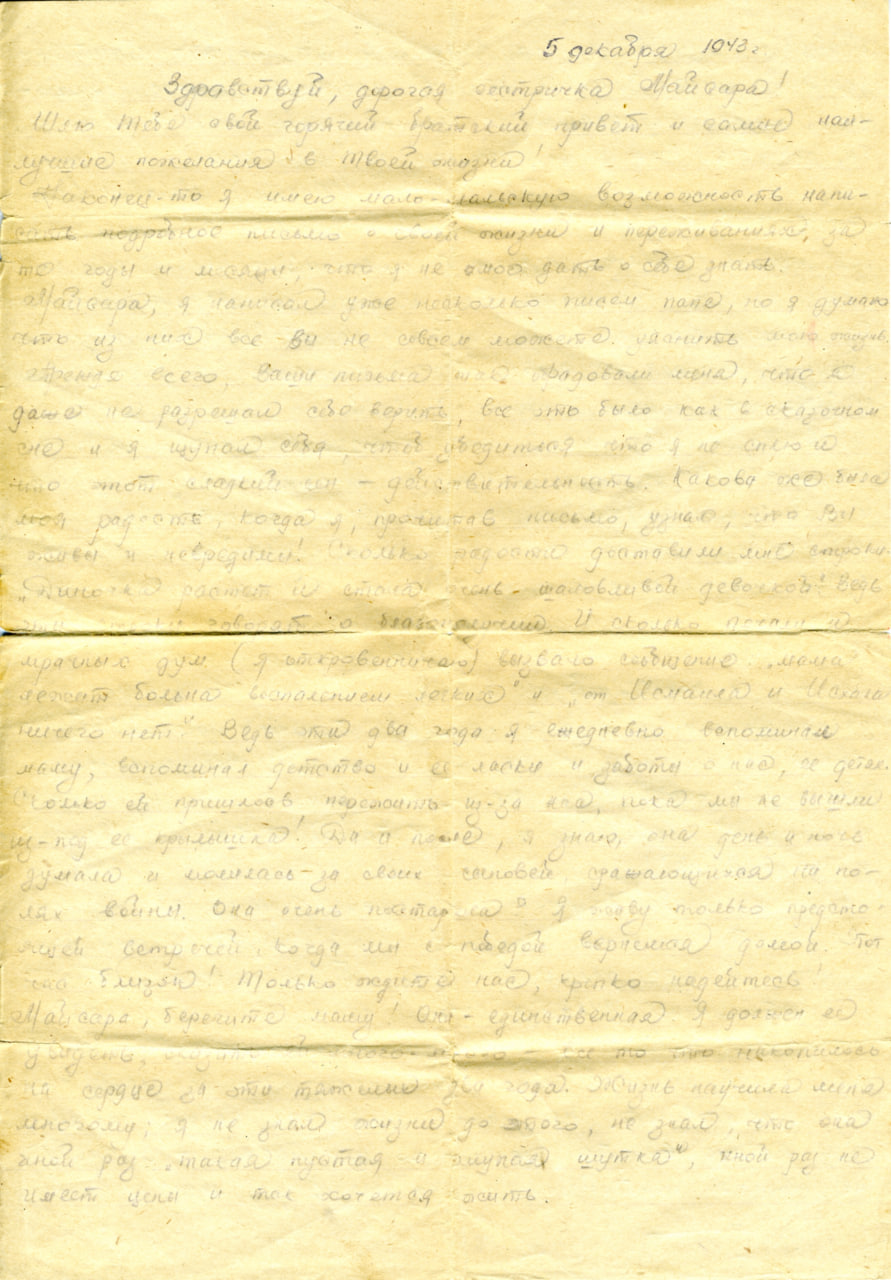 5 декабря 1943 г.
Здравствуй, дорогая сестричка Майсара!
Шлю тебе свой горячий братский привет и самые наи-
лучшие пожелания в твоей жизни!
Наконец-то я имею мало-мальскую возможность напи-
сать подробное письмо о своей жизни и переживаниях, за
те годы и месяцы, что я не мог дать о себе знать.
Майсара, я написал уже несколько писем папе, но я думаю
что из них все вы не совсем можете уяснить мою жизнь.
Прежде всего, ваши письма так обрадовали меня, что я
даже не разрешал себе верить, все это было как в сказочном
сне и я щупал себя, чтоб убедиться что я не сплю и
что этот сладкий сон – действительность. Какова же была
моя радость, когда я, прочитав письмо, узнал, что Вы
живы и невредимы! Сколько радости доставили мне строки
„Диночка растет и стала очень шаловливой девочкой“! Ведь
говорят о благополучии. И сколько печали и
мрачных дум (я откровенничаю) вызвало сообщение „мама
лежит больна воспалением легких“ и „от Исмаила и Исхака
ничего нет“. Ведь эти два года я ежедневно вспоминал
маму, вспоминал детство и ее ласки и заботы о нас, ее детях.
Сколько ей пришлось пережить из-за нас, пока мы не вышли
из-под ее крылышка! Да и после, я знаю, она день и ночь
думала и молилась за своих сыновей, сражающихся на по-
лях войны. Она очень постарела? Я живу только предсто-
ящей встречей, когда мы с победой вернемся домой. Тот
час близок! Только ждите нас, крепко надейтесь!
Майсара, берегите маму! Она – единственная. Я должен ее
увидеть, сказать ей много-много – все то что накопилось
на сердце за эти тяжелые два года. Жизнь научила меня
многому; я не знал жизни до этого, не знал, что она
иной раз „такая пустая и глупая шутка“, иной раз не
имеет цены и так хочется жить.